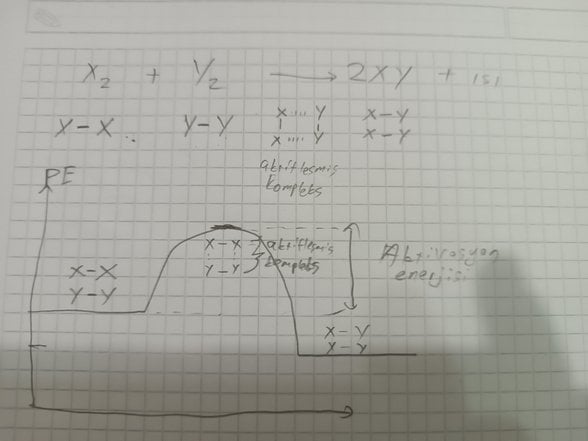 X₂ + Y₂ → 2XY + ısı
X-X Y-Y X....Y X-Y
X....Y X-Y
aktifleşmiş
kompleks
PE
X-X
Y-Y
X-X
Y-Y
aktifleşmiş
kompleks
Aktivasyon
enerjisi
X-Y
X-Y